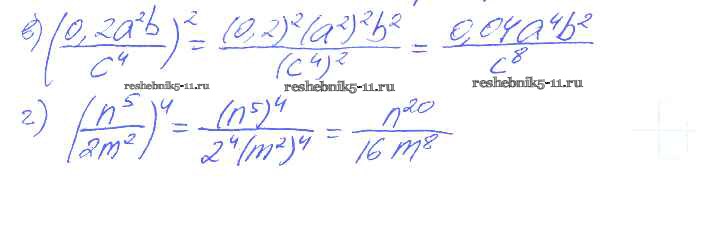 в) (0,2a²b / c⁴)² = (0,2)²(a²)²b² / (c⁴)² = 0,04a⁴b² / c⁸
reshebnik5-11.ru reshebnik5-11.ru reshebnik5-11.ru
г) (n⁵ / 2m²)⁴ = (n⁵)⁴ / 2⁴(m²)⁴ = n²⁰ / 16m⁸